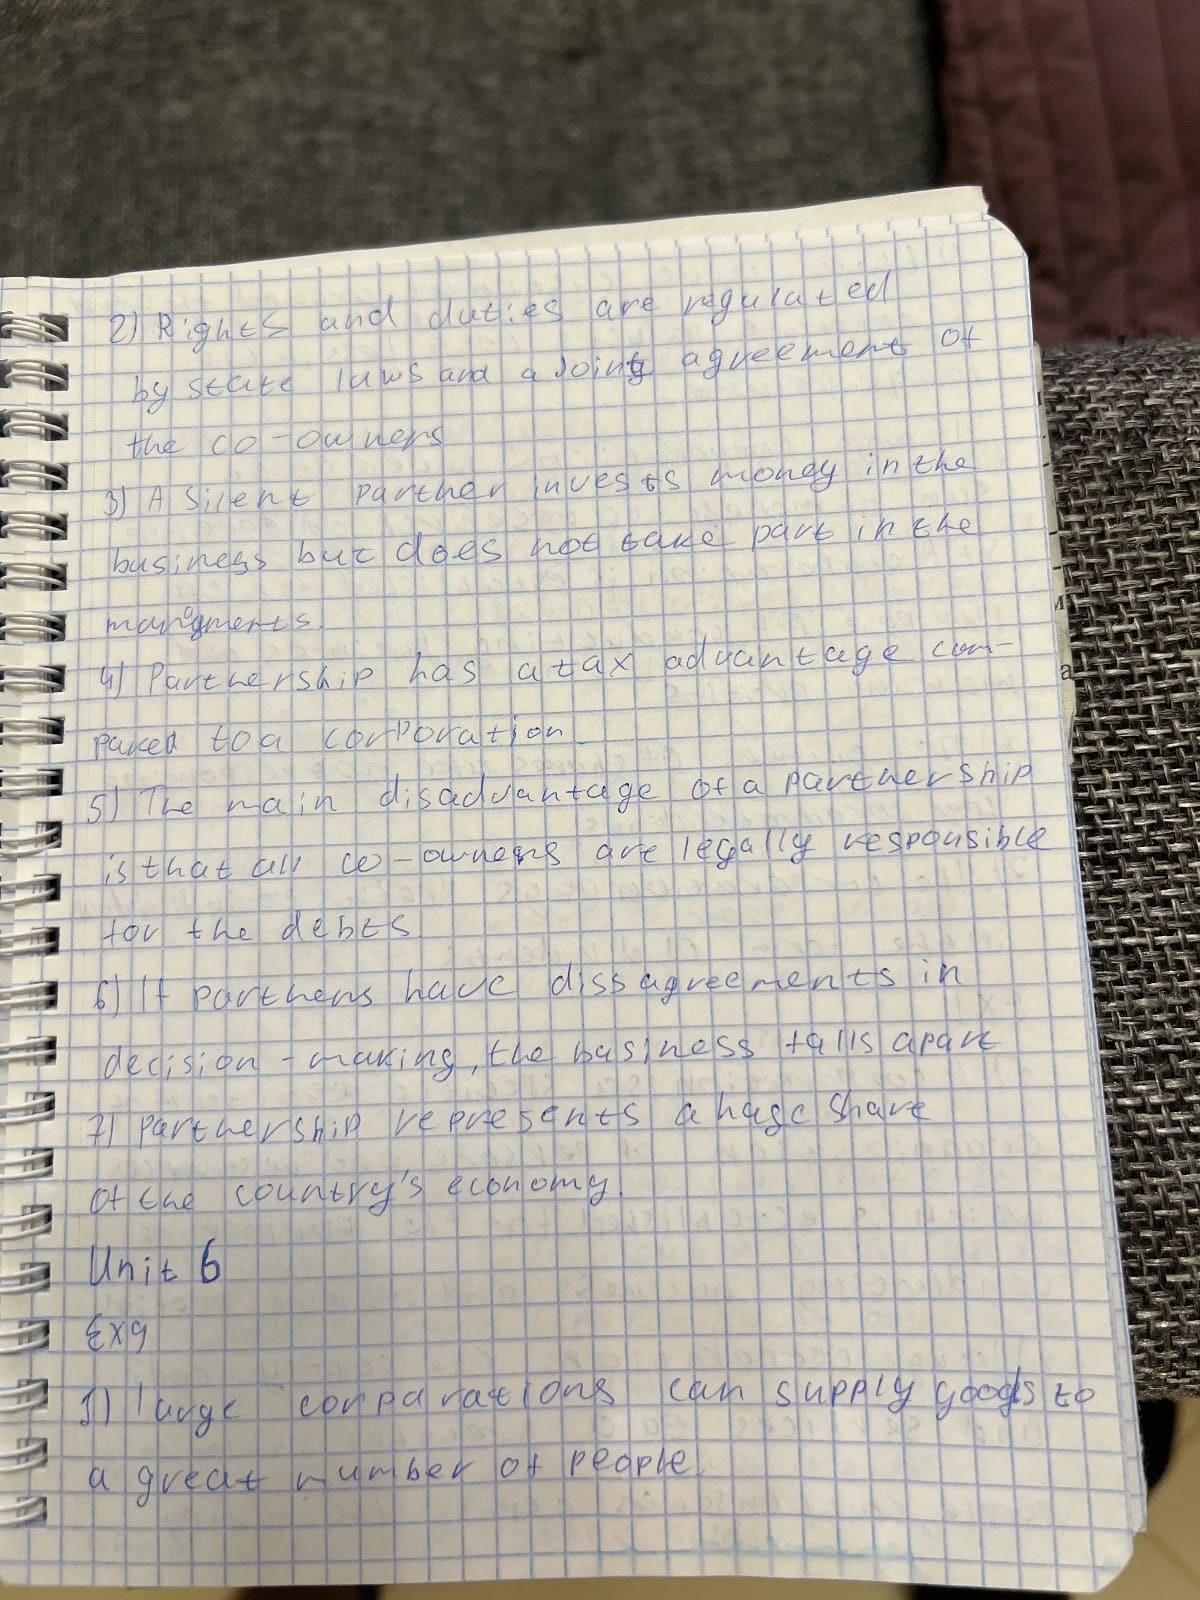 2) Rights and duties are regulated
by state laws and a joint agreement of
the co-owners
3) A silent partner invests money in the
business but does not take part in the
managments.
4) Partnership has a tax advantage com-
pared to a corporation.
5) The main disadvantage of a partnership
is that all co-owners are legally responsible
for the debts
6) If partners have dissagreements in
decision-making, the business falls apart
7) partnership represents a huge share
of the country's economy.
Unit 6
Ex9
1) large corparations can supply goods to
a great number of people.